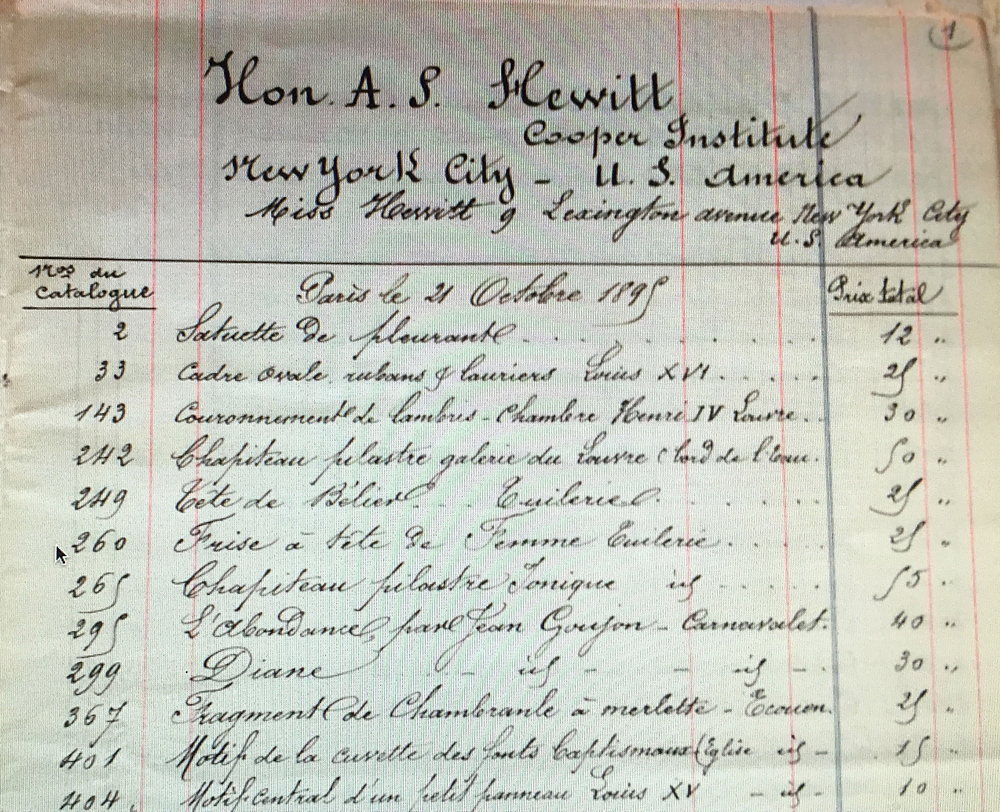 1
Hon. A. S. Hewitt
Cooper Institute
New York City - U. S. America
Miss Hewitt 9 Lexington avenue New York City
U.S. America
Nos du Catalogue Paris le 21 Octobre 1895 Prix total
2 Satuette de pleurant . . . . . . . 12 "
33 Cadre Ovale, rubans & lauriers Louis XVI . . . . 25 "
143 Couronnement de lambris - Chambre Henri IV Louvre . . 30 "
242 Chapiteau pilastre galerie du Louvre (bord de l'Eau. 50 "
249 Tête de Bélier . . . Tuilerie . . . . . 25 "
260 Frise à tête de Femme Tuilerie . . . . 25 "
265 Chapiteau pilastre Ionique id - . . . . 55 "
295 L'Abondance, par Jean Goujon - Carnavalet. 40 "
299 Diane - id - - id - . 30 "
367 Fragment de Chambranle à merlette - Ecouen. 25 "
401 Motif de la cuvette des fonts baptismaux (Eglise id - 15 "
404. Motif central d'un petit panneau Louis XV - id - 10 "